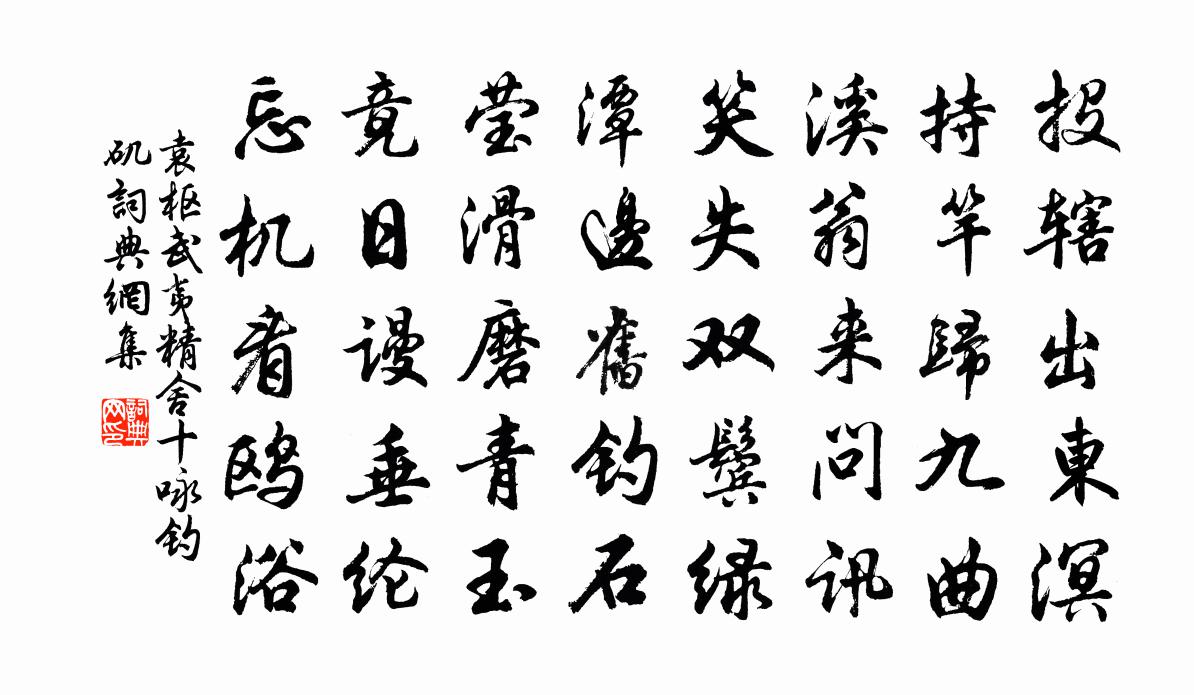 投辖出東溟
持竿歸九曲
溪翁来问讯
笑失双鬓绿
潭邊舊钓石
莹滑磨青玉
竟日谩垂纶
忘机看鸥浴
袁枢武夷精舍十咏钓
矶詞典網集
詞典
网印